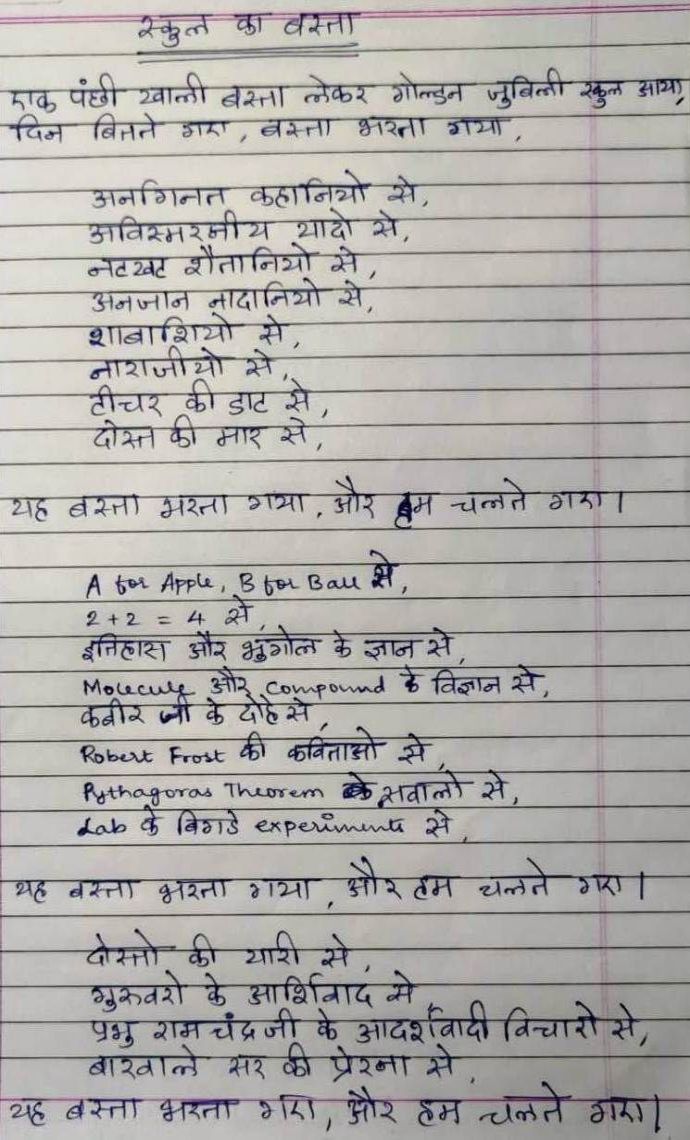 स्कुल का बस्ता
एक पंछी खाली बस्ता लेकर गोल्डन जुबिली स्कुल आया,
दिन बितते गए, बस्ता भरता गया,
अनगिनत कहानियो से,
अविस्मरनीय यादो से,
नटखट शैतानियो से,
अनजान नादानियो से,
शाबाशियो से,
नाराजीयो से,
टीचर की डाट से,
दोस्त की मार से,
यह बस्ता भरता गया, और हम चलते गए।
A for Apple, B for Ball से,
2 + 2 = 4 से,
इतिहास और भुगोल के ज्ञान से,
Molecule और compound के विज्ञान से,
कबीर जी के दोहे से,
Robert Frost की कविताओ से,
Pythagoras Theorem के सवालो से,
Lab के बिगडे experiments से,
यह बस्ता भरता गया, और हम चलते गए।
दोस्तो की यारी से,
गुरुवरो के आर्शिवाद से,
प्रभु रामचंद्रजी के आदर्शवादी विचारो से,
बारवाले सर की प्रेरना से,
यह बस्ता भरता गए, और हम चलते गए।